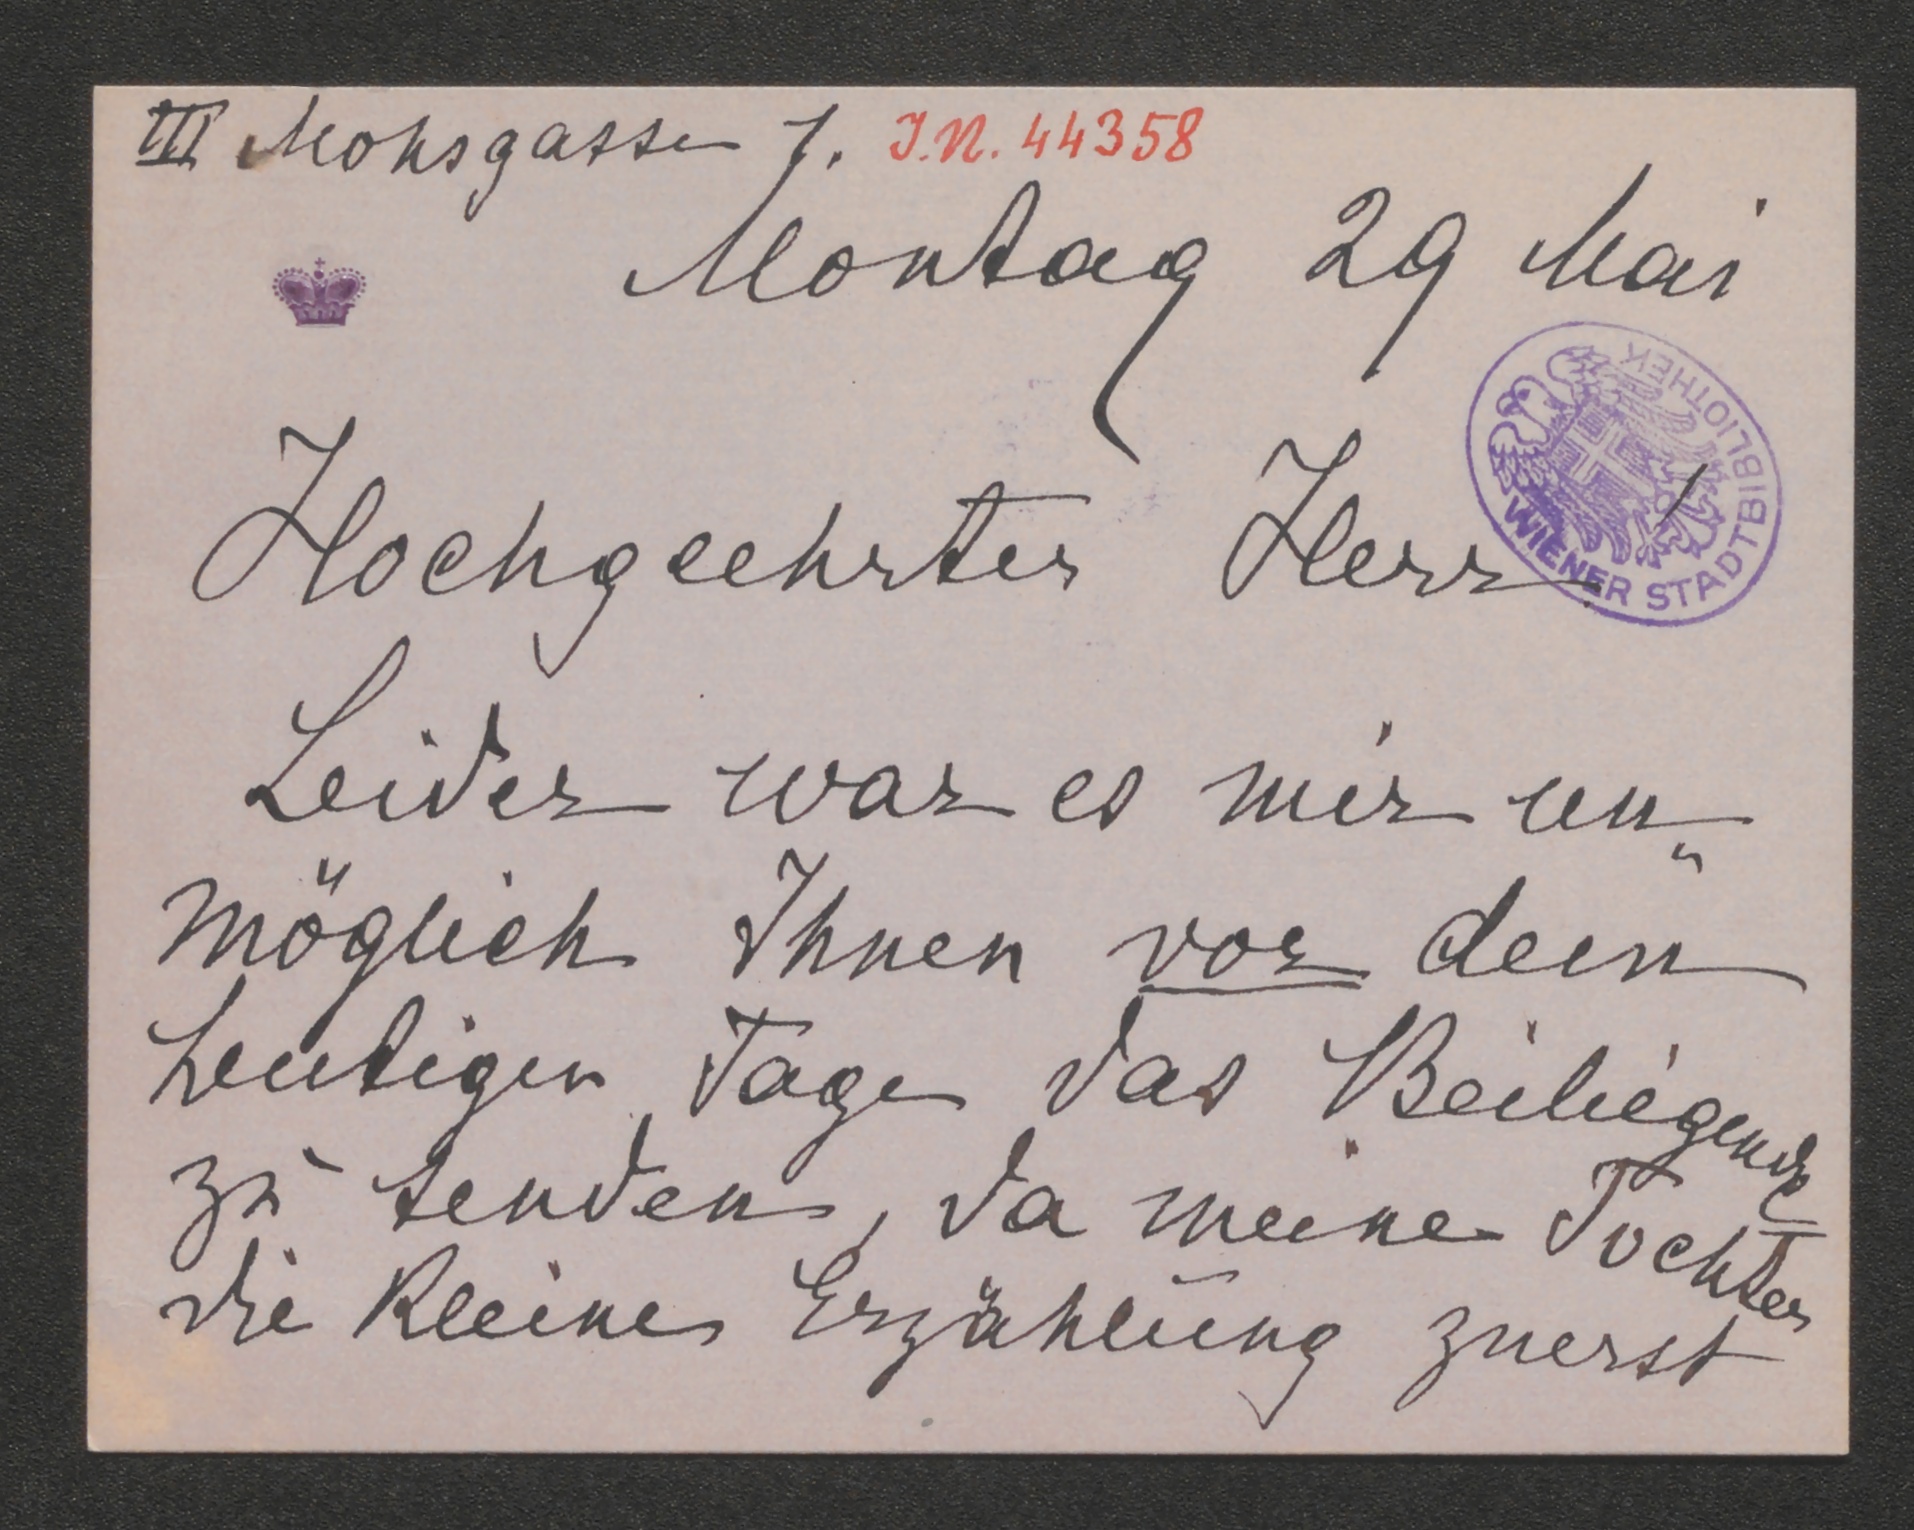 III Mohsgasse 1. I.N. 44358
Montag 29 Mai
WIENER STADTBIBLIOTHEK
Hochgeehrter Herr!
Leider war es mir un„
möglich Ihnen vor dem
heutigen Tage das Beiliegende
zu senden, da meine Tochter
die kleine Erzählung zuerst